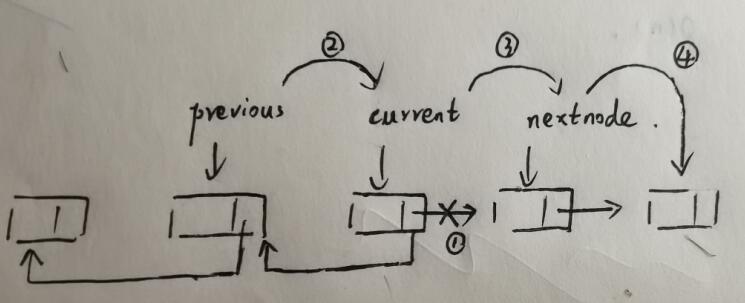 ② ③ ④
previous current nextnode.
①